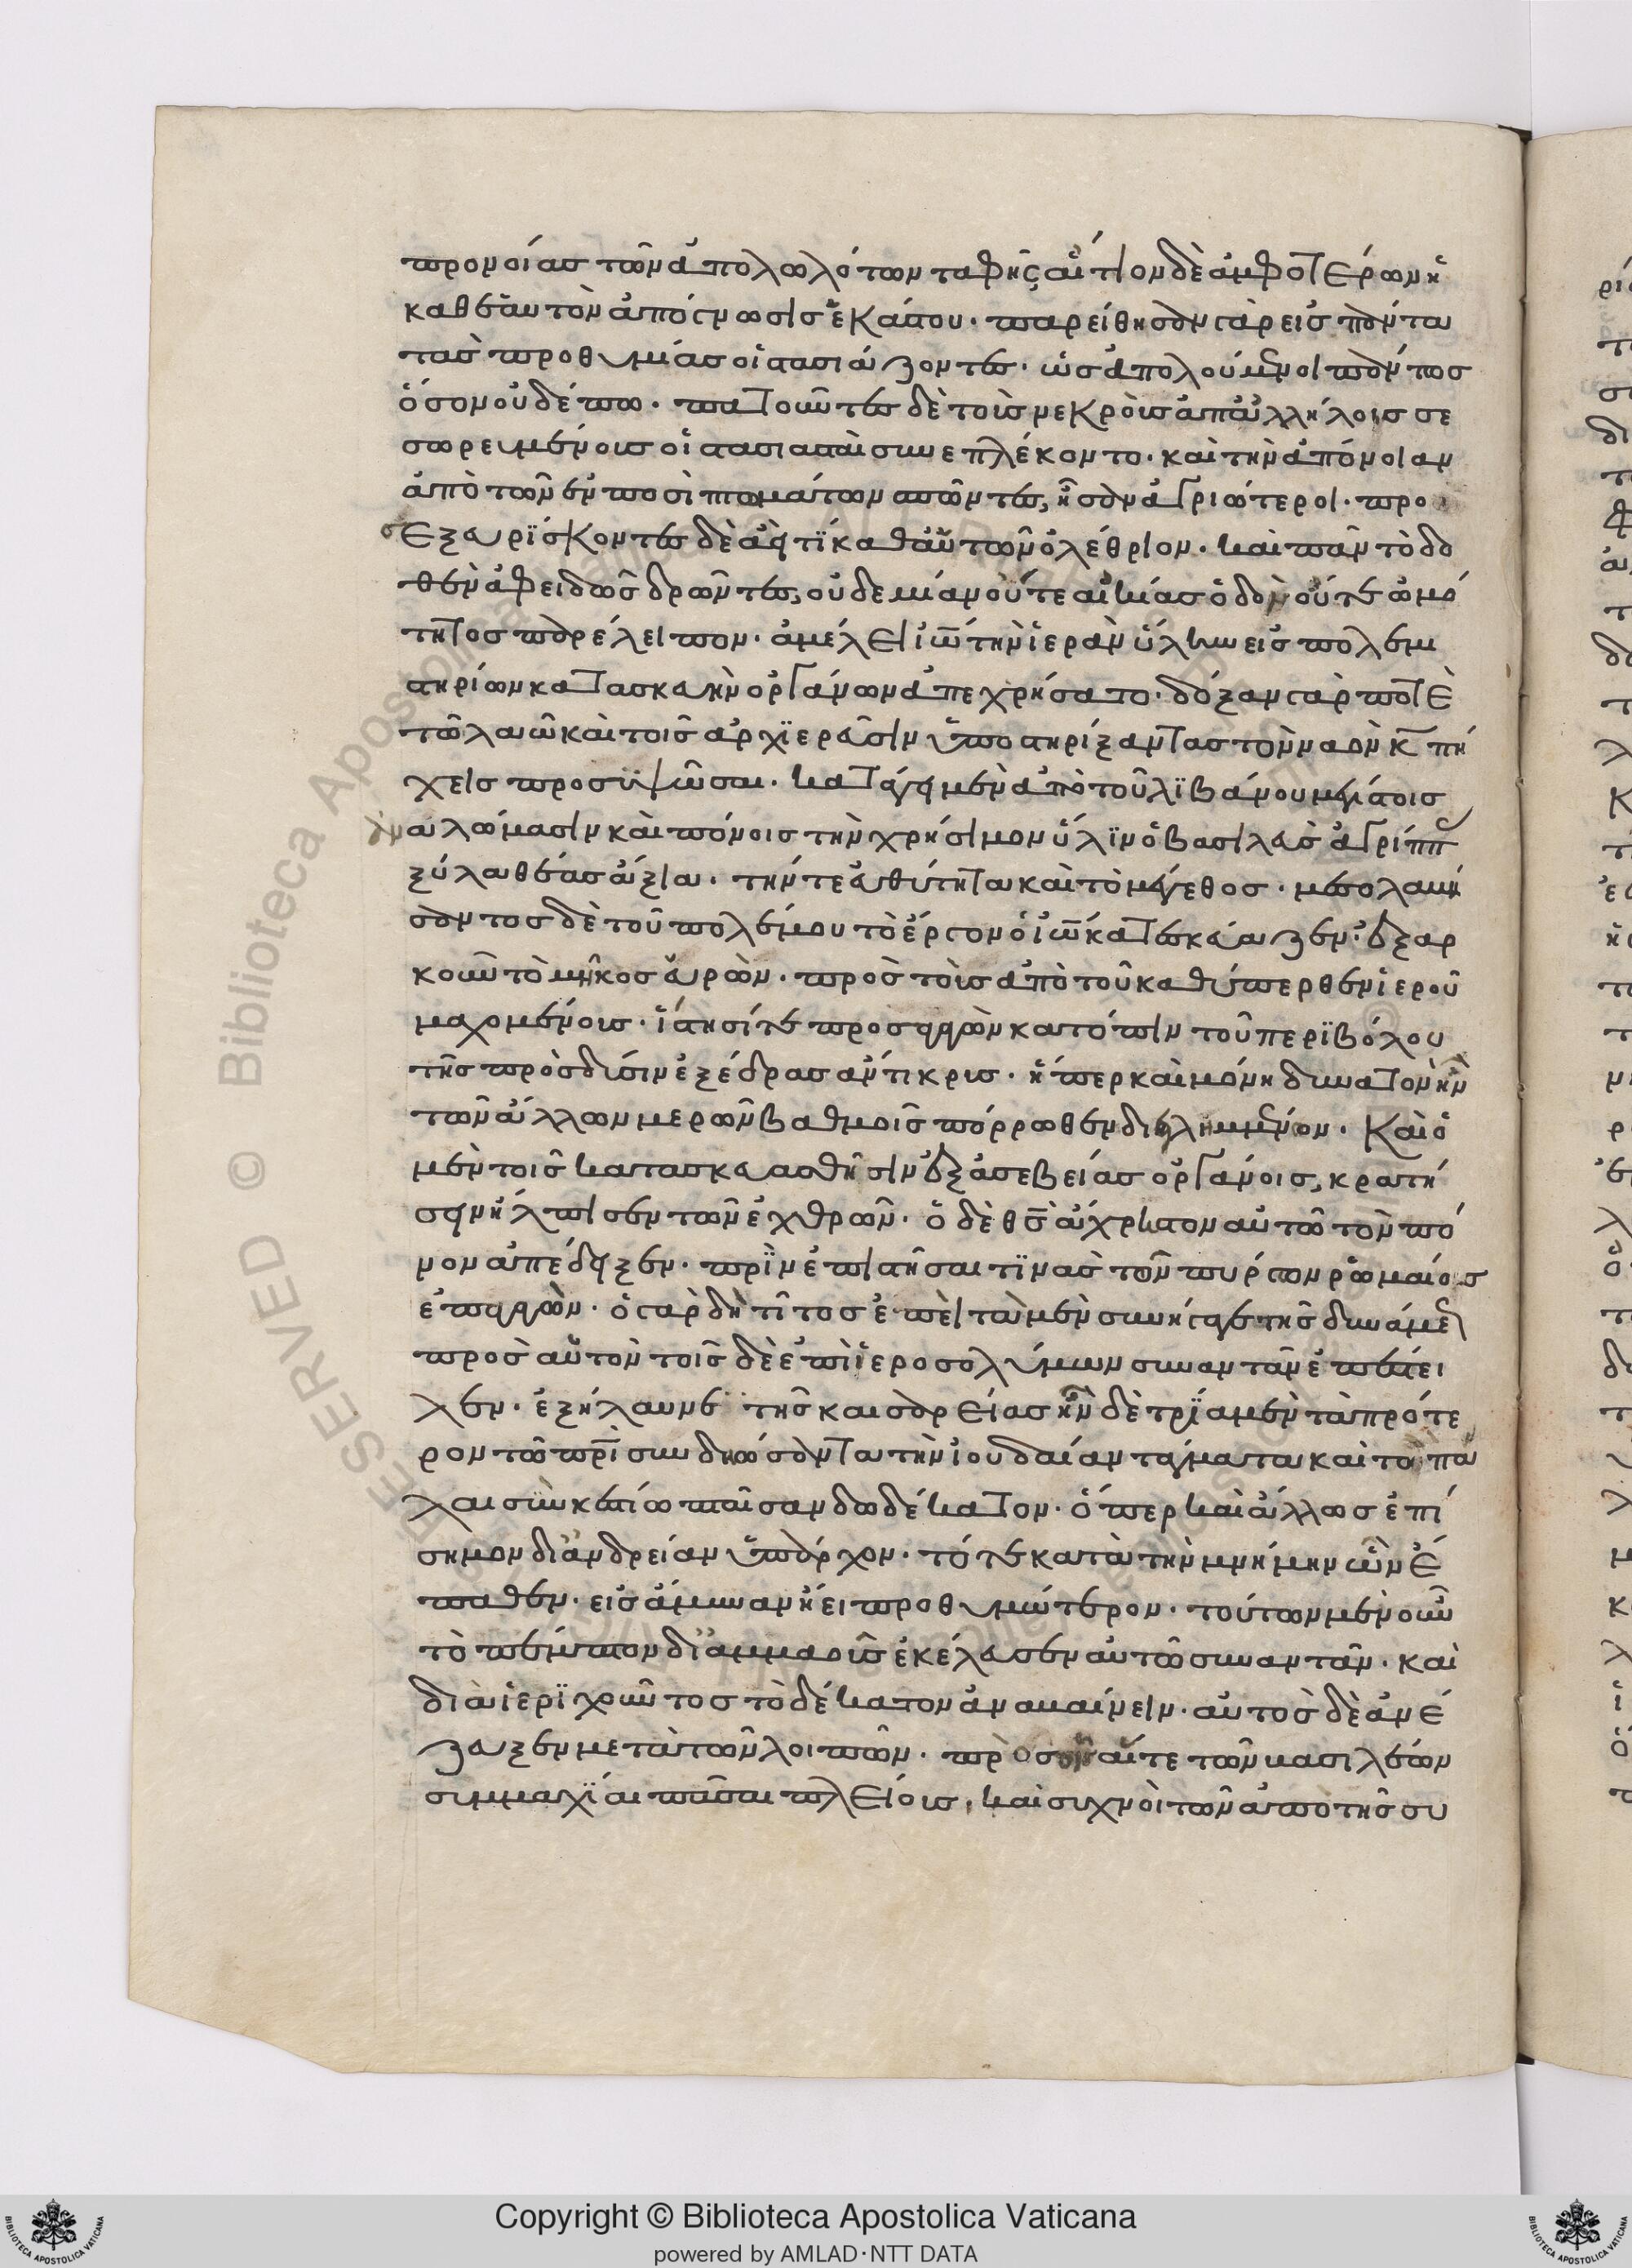 προνοίας τῶν ἀπολωλότων ταφῆς αἴτιον δὲ ἀμφοτέρων ἡ
καθ' ἑαυτὸν ἀπόγνωσις ἑκάστου· παρείθησαν γὰρ εἰς πάντα
τὰς προθυμίας οἱ στασιάζοντες· ὡς ἀπολούμενοι πάντως
ὅσον οὐδέπω· πατοῦντες δὲ τοῖς νεκροῖς ἐπ' ἀλλήλοις σε
σωρευμένοις οἱ στασιασταὶ συνεπλέκοντο· καὶ τὴν ἀπόνοιαν
ἀπὸ τῶν ἐν ποσὶ πτωμάτων σπῶντες, ἦσαν ἀγριώτεροι· προ
σεξευρίσκοντες δὲ ἀεί τι καθ' αὑτῶν ὀλέθριον· καὶ πᾶν τὸ δο
χθὲν ἀφειδῶς δρῶντες, οὐδεμίαν οὔτε αἰκίας ὁδὸν οὔτε ὠμό
τητος παρέλειπον· ἀμέλει ἰω̅ τὴν ἱερὰν ὕλην εἰς πολεμι
στηρίων κατασκευὴν ὀργάνων ἀπεχρήσατο· δόξαν γὰρ ποτὲ
τῶ λαῶ καὶ τοῖς ἀρχιερεῦσιν ὑποστηρίξαντας τὸν ναὸν κ̅ πή
χεις προσυψῶσαι· κατάγει μὲν ἀπὸ τοῦ λιβάνου μεγίστοις
ἀναλώμασιν καὶ πόνοις τὴν χρήσιμον ὕλην ὁ βασιλεὺς ἀγρίππ
ξύλα θέας ἄξια· τήν τε εὐθύτητα καὶ τὸ μέγεθος· μεσολαβή
σαντος δὲ τοῦ πολέμου τὸ ἔργον ὁ ἰω̅ κατεσκεύαζεν· ἐξαρ
κοῦν τὸ μῆκος εὑρὼν· πρὸς τοῖς ἀπὸ τοῦ καθύπερθεν ἱεροῦ
μαχομένοις· ἵστησί τε προσαγαγὼν κατόπιν τοῦ περιβόλου
τῆς πρὸς δύσιν ἐξέδρας ἄντικρις· ἥπερ καὶ μόνη δυνατὸν ἦν
τῶν ἄλλων μερῶν βαθμοῖς πόρρωθεν διειλημμένον· Καὶ ὁ
μὲν τοῖς κατασκευασθεῖσιν ἐξ ἀσεβείας ὀργάνοις, κρατή
σειν ἤλπισεν τῶν ἐχθρῶν· ὁ δὲ θ̅ς̅ ἄχρηστον αὐτῶ τὸν πό
νον ἀπέδειξεν· πρὶν ἐπιστῆσαί τινας τῶν πύργων ῥωμαίους
ἐπαγαγὼν· ὁ γὰρ δὴ τίτος ἐπεὶ τὰ μὲν συνήγαγε τῆς δυνάμεως
πρὸς αὑτὸν τοῖς δὲ ἐπὶ ἱεροσολύμων συναντᾶν ἐπέστει
λεν· ἐξήλαυνε τῆς καισαρείας ἦν δὲ τρία μὲν τὰ πρότε
ρον τῶ πρ̅ι̅ συνδηώσαντα τὴν ἰουδαίαν τάγματα καὶ τὸ πά
λαι σὺν κεστίω πταῖσαν δωδέκατον· ὅπερ καὶ ἄλλως ἐπί
σημον δι' ἀνδρείαν ὑπάρχον· τότε κατὰ τὴν μνήμην ὧν ἔ
παθεν· εἰς ἄμυναν ἤει προθυμώτερον· τούτων μὲν οὖν
τὸ πέμπτον δι' ἀμμαοῦς ἐκέλευσεν αὐτῶ συναντᾶν· καὶ
διὰ ἱεριχοῦντος τὸ δέκατον ἀναβαίνειν· αὐτὸς δὲ ἀνέ
ζευξεν μετὰ τῶν λοιπῶν· πρὸς οἷς αἵ τε τῶν βασιλέων
συμμαχίαι πᾶσαι πλείους, καὶ συχνοὶ τῶν ἀπὸ τῆς συ